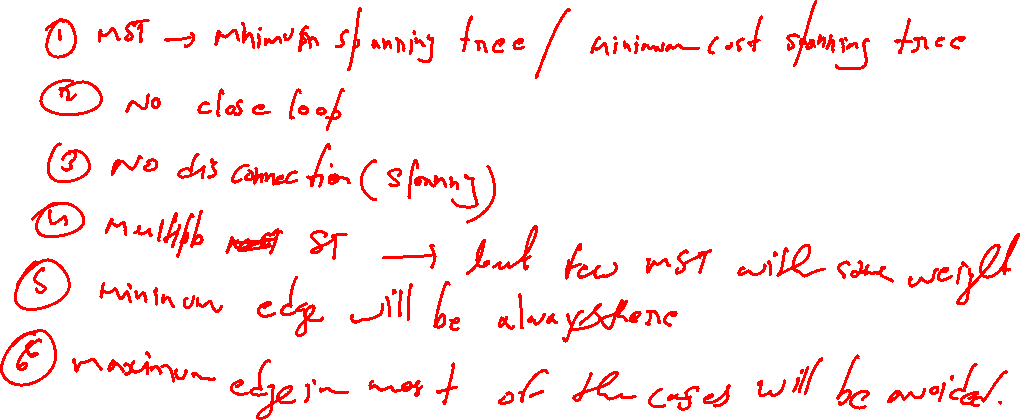 ① MST → Minimum spanning tree / minimum cost spanning tree
② No close loop
③ No disconnection (spanning)
④ Multiple ST → but few MST with same weight
⑤ minimum edge will be always there
⑥ maximum edge in most of the cases will be avoided.